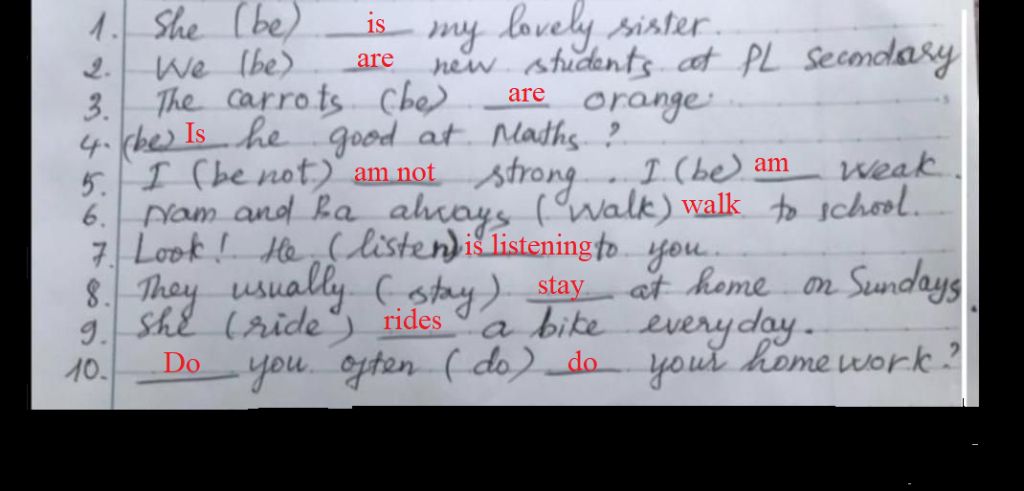 1. She (be) is my lovely sister.
2. We (be) are new students at PL Secondary
3. The carrots (be) are orange.
4. (be) Is he good at Maths ?
5. I (be not) am not strong. I (be) am weak.
6. Nam and Ba always (walk) walk to school.
7. Look! He (listen) is listening to you.
8. They usually (stay) stay at home on Sundays
9. She (ride) rides a bike everyday.
10. Do you often (do) do your homework?